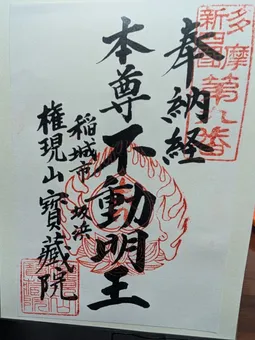 多摩
新四国
第九番
奉納経
本尊不動明王
稲城市坂浜
権現山寶蔵院